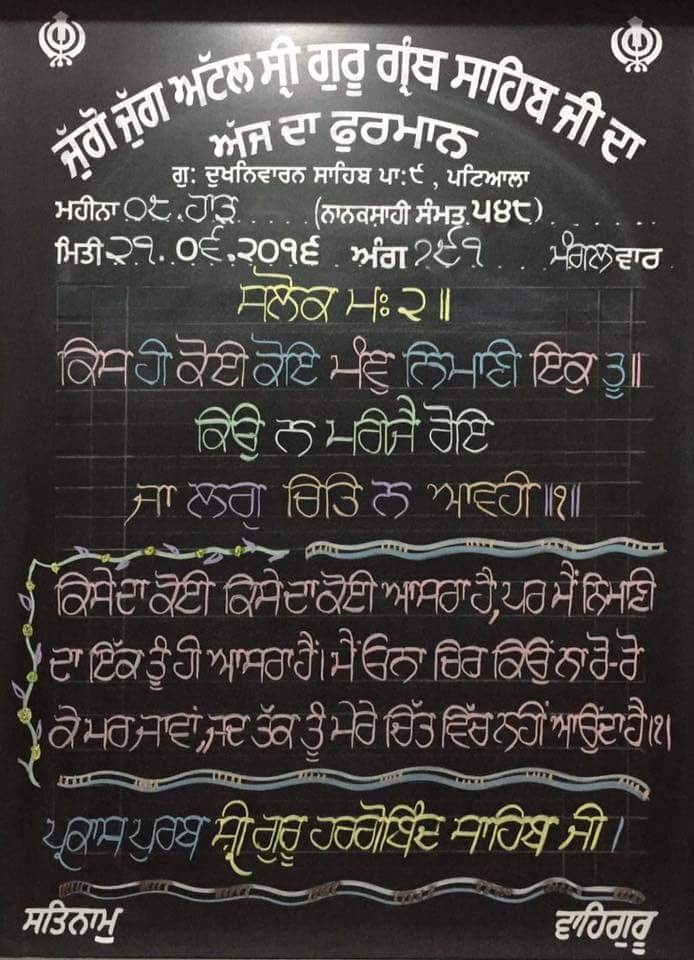 ਜੁੱਗੋ ਜੁੱਗ ਅਟੱਲ ਸ੍ਰੀ ਗੁਰੂ ਗ੍ਰੰਥ ਸਾਹਿਬ ਜੀ ਦਾ
ਅੱਜ ਦਾ ਫੁਰਮਾਨ
ਗੁ: ਦੁਖਨਿਵਾਰਨ ਸਾਹਿਬ ਪਾ:੯, ਪਟਿਆਲਾ
ਮਹੀਨਾ ੦੮.ਹਾੜ (ਨਾਨਕਸ਼ਾਹੀ ਸੰਮਤ ੫੪੮)
ਮਿਤੀ ੨੧.੦੬.੨੦੧੬ ਅੰਗ ੭੯੧ ਮੰਗਲਵਾਰ
ਸਲੋਕ ਮਃ ੨॥
ਕਿਸ ਹੀ ਕੋਈ ਕੋਇ ਮੰਞੁ ਨਿਮਾਣੀ ਇਕੁ ਤੂ॥
ਕਿਉ ਨ ਮਰੀਜੈ ਰੋਇ
ਜਾ ਲਗੁ ਚਿਤਿ ਨ ਆਵਹੀ॥੧॥
ਕਿਸੇ ਦਾ ਕੋਈ ਕਿਸੇ ਦਾ ਕੋਈ ਆਸਰਾ ਹੈ, ਪਰ ਮੈਂ ਨਿਮਾਣੀ
ਦਾ ਇੱਕ ਤੂੰ ਹੀ ਆਸਰਾ ਹੈਂ। ਮੈਂ ਓਨਾ ਚਿਰ ਕਿਉਂ ਨਾ ਰੋ-ਰੋ
ਕੇ ਮਰ ਜਾਵਾਂ, ਜਦ ਤੱਕ ਤੂੰ ਮੇਰੇ ਚਿੱਤ ਵਿੱਚ ਨਹੀਂ ਆਉਂਦਾ ਹੈ।੧।
ਪ੍ਰਕਾਸ਼ ਪੁਰਬ ਸ਼੍ਰੀ ਗੁਰੂ ਹਰਗੋਬਿੰਦ ਸਾਹਿਬ ਜੀ।
ਸਤਿਨਾਮੁ ਵਾਹਿਗੁਰੂ